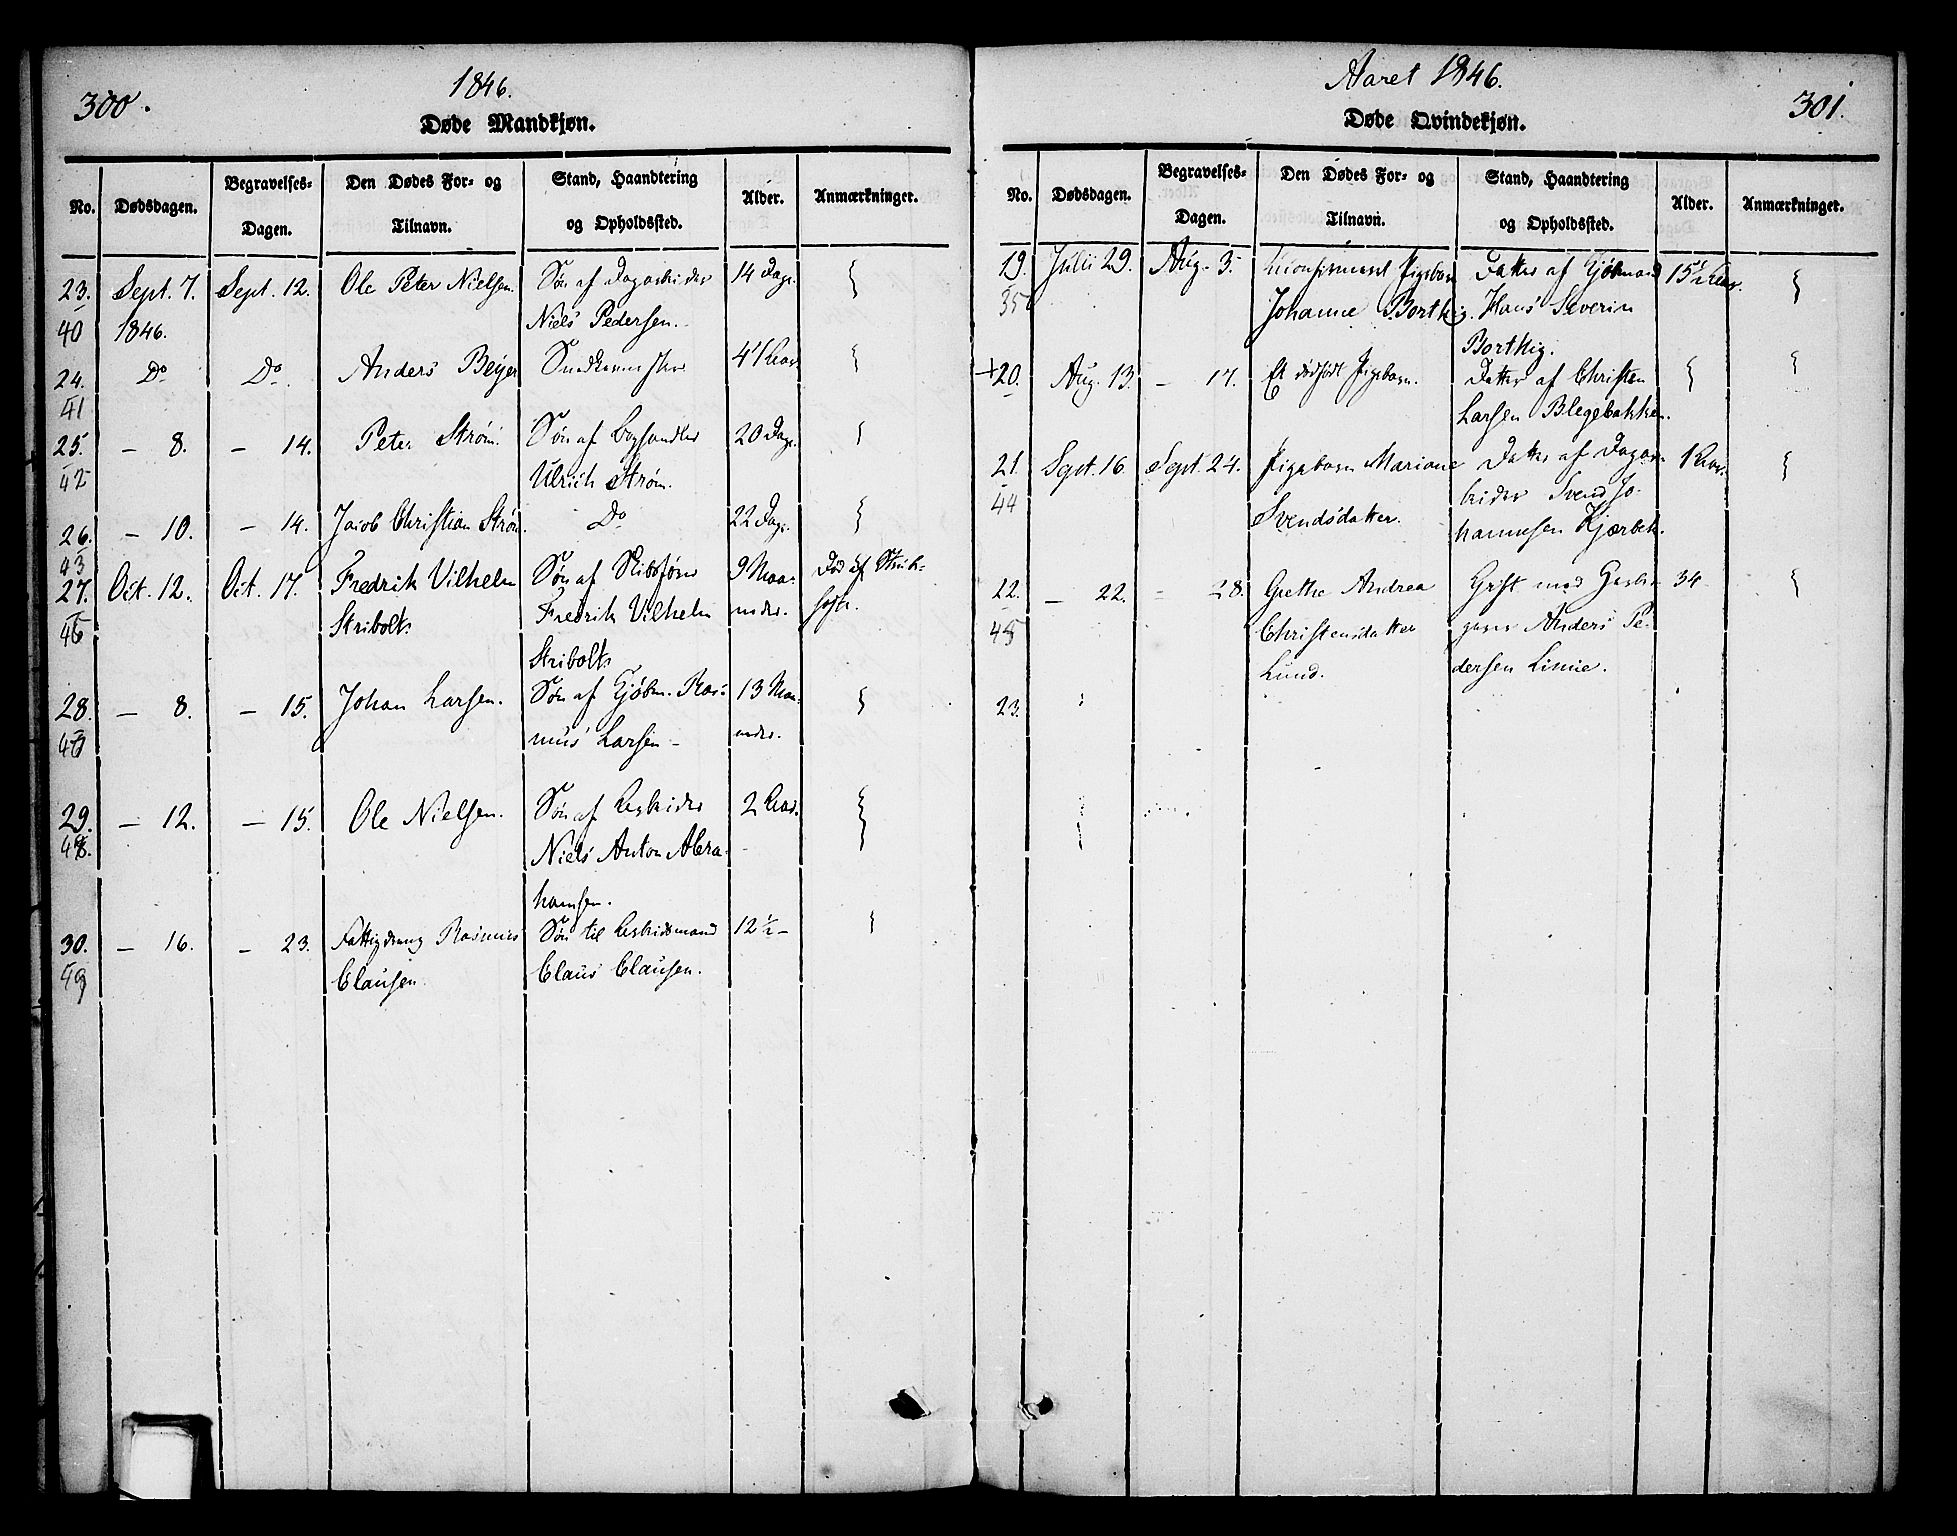 300.
1846.
Døde Mandkjøn.
No. Dødsdagen. Begravelses-Dagen. Den Dødes For- og Tilnavn. Stand, Haandtering og Opholdssted. Alder. Anmærkninger.
23. Sept. 7. Sept. 12. Ole Peter Nielsen. Søn af Dagarbeider 14 Dage.
40 1846. Niels Pedersen.
24. Do Do Anders Beyer 41 Aar
41
25. – 8. – 14. Peter Strøm. Søn af 20 Dage.
42 Ulrich Strøm.
26. – 10. – 14. Jacob Christian Strøm Do 22 Dage.
43
27. Oct. 12. Oct. 17. Fredrik Vilhelm Søn af Skibsfører 9 Maa- Død af Strub-
46 Stribolt. Fredrik Vilhelm neder. hoste.
Stribolt.
28. – 8. – 15. Johan Larsen. Søn af Kjøbm. Ras- 13 Maa-
47 mus Larsen – neder.
29. – 12. – 15. Ole Nielsen. Søn af Arbeider 2 Aar.
48. Niels Anton Abra-
hamsen.
30. – 16. – 23. Fattigdreng Rasmus Søn til Arbeidsmand 12½ –
49 Clausen. Claus Clausen.
Aaret 1846.
301.
Døde Qvindekjøn.
No. Dødsdagen. Begravelses-Dagen. Den Dødes For- og Tilnavn. Stand, Haandtering og Opholdssted. Alder. Anmærkninger.
19. Julii 29. Aug. 3. Uconfirmeret Pigebarn Datter af Kjøbmand 15½ Aar.
35 Johanne Borthig. Hans Severin
Borthig.
+20. Aug. 13. – 17. Et dødfødt Pigebarn. Datter af Christen
Larsen Blegebakken.
21. Sept. 16. Sept. 24. Pigebarn Mariane Datter af Dagar- 1 Aar.
44 Svendsdatter. beider Svend Jo-
hannesen Kjærbek.
22. – 22. – 28. Grethe Andrea Gift med 34
45 Christensdatter Anders Pe-
Lund. dersen Linie.
23.